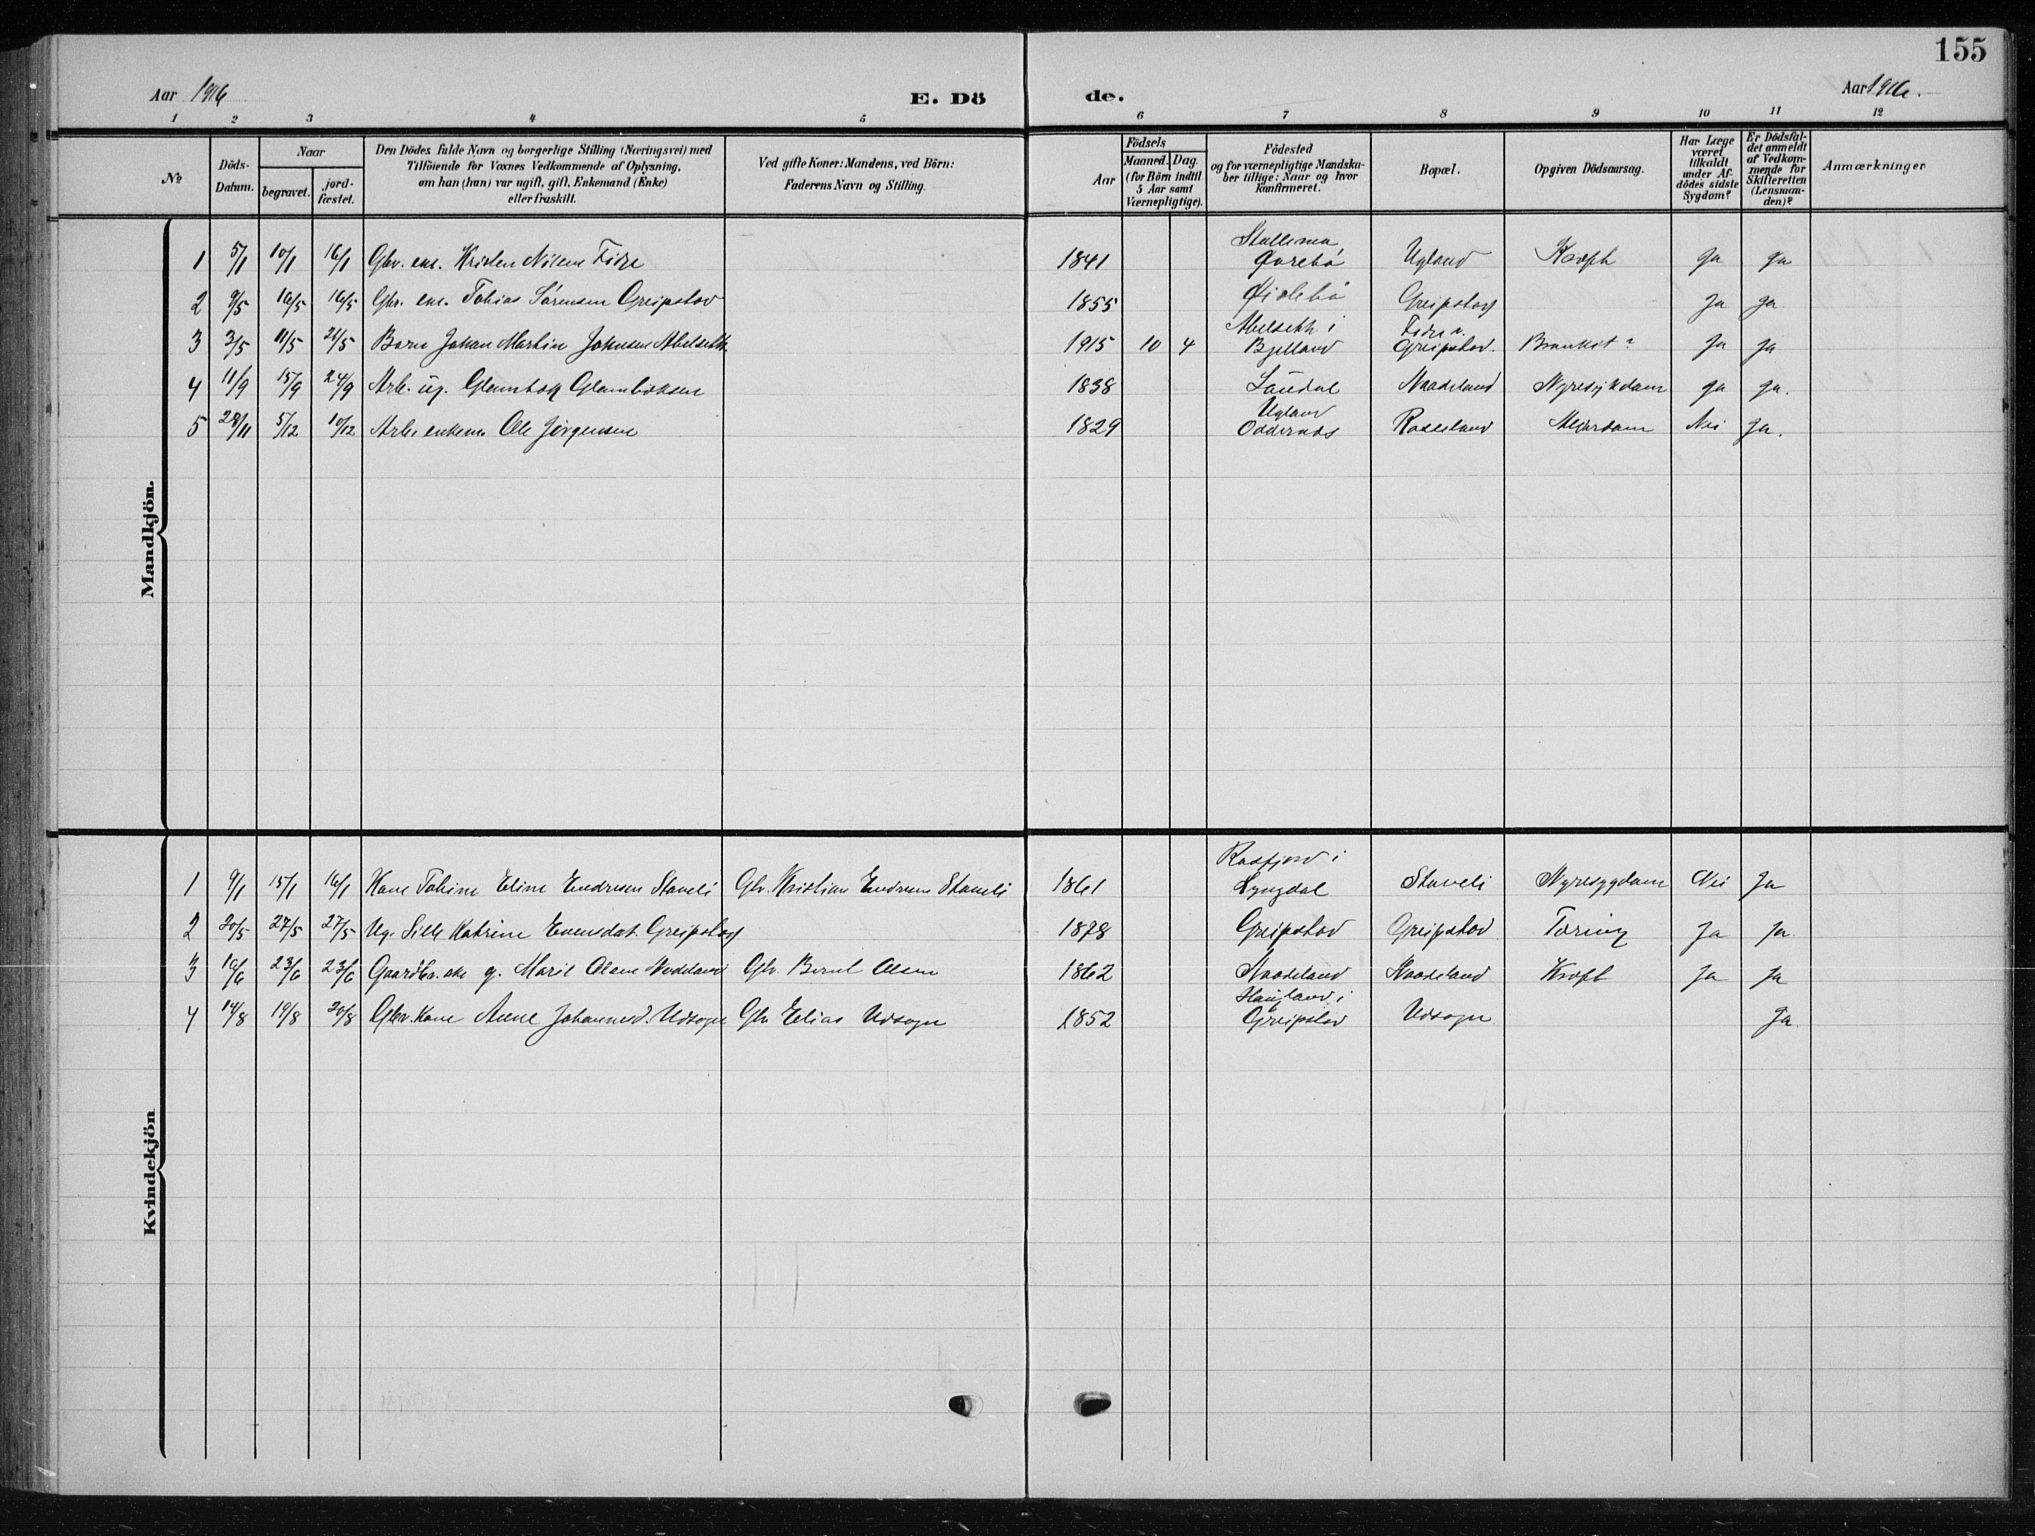 155
Aar 1916 E. Dö de. Aar 1916.
1 2 3 4 5 6 7 8 9 10 11 12
№
Döds-Datum.
Naar
begravet.
jord-fæstet.
Den Dödes fulde Navn og borgerlige Stilling (Næringsvei) med
Tilföiende for Voxnes Vedkommende af Oplysning,
om han (hun) var ugift, gift, Enkemand (Enke)
eller fraskilt.
Ved gifte Koner: Mandens, ved Börn:
Faderens Navn og Stilling.
Födsels
Aar
Maaned. Dag.
(for Börn indtil
5 Aar samt
Værnepligtige).
Födested
og for værnepligtige Mandska-
ber tillige: Naar og hvor
konfirmeret.
Bopæl.
Opgiven Dödsaarsag.
Har Læge
været
tilkaldt
under Af-
dödes sidste
Sygdom?
Er Dödsfal-
det anmeldt
af Vedkom-
mende for
Skifteretten
(Lensman-
den)?
Anmærkninger
Mandkjön.
1 5/1 10/1 16/1 Gbr. enk. Kristen Nilsen Fidje 1841 Øvrebø Ugland Kræft Ja Ja
2 9/5 16/5 16/5 Gbr. enk. Tobias Sørensen Greipstad 1855 Øislebø Greipstad Ja Ja
3 3/5 11/5 21/5 Barn Johan Martin Johnsen Abelseth 1915 10 4 Abelseth i Bjelland Fidje Greipstad. Bronkit? Ja Ja
4 11/9 15/9 24/9 Arb. ug. Glambek Glambeksen 1838 Laudal Naadeland Nyresykdom Ja Ja.
5 28/11 5/12 10/12 Arb. enkem. Ole Jørgensen 1829 Ugland Oddernes Rosseland Alderdom Nei Ja.
Kvindekjön
1 9/1 15/1 16/1 Kone Tobine Eline Endresen Staveli Gbr. Kristian Endresen Staveli 1861 Rosfjord i Lyngdal Staveli Nyresygdom Nei Ja
2 20/5 27/5 27/5 Ug. Sille Katrine Evensdat. Greipstad 1878 Greipstad Greipstad Tæring Ja Ja.
3 16/6 23/6 23/6 Gaardbr. g. Marie Olsen Gbr. Bernt Olsen 1862 Naadeland Naadeland Kræft Ja Ja
4 14/8 19/8 20/8 Gbr. Kone Anne Johannesd. Udsogn Gbr Elias Udsogn 1852 Haugland i Greipstad Udsogn Ja.